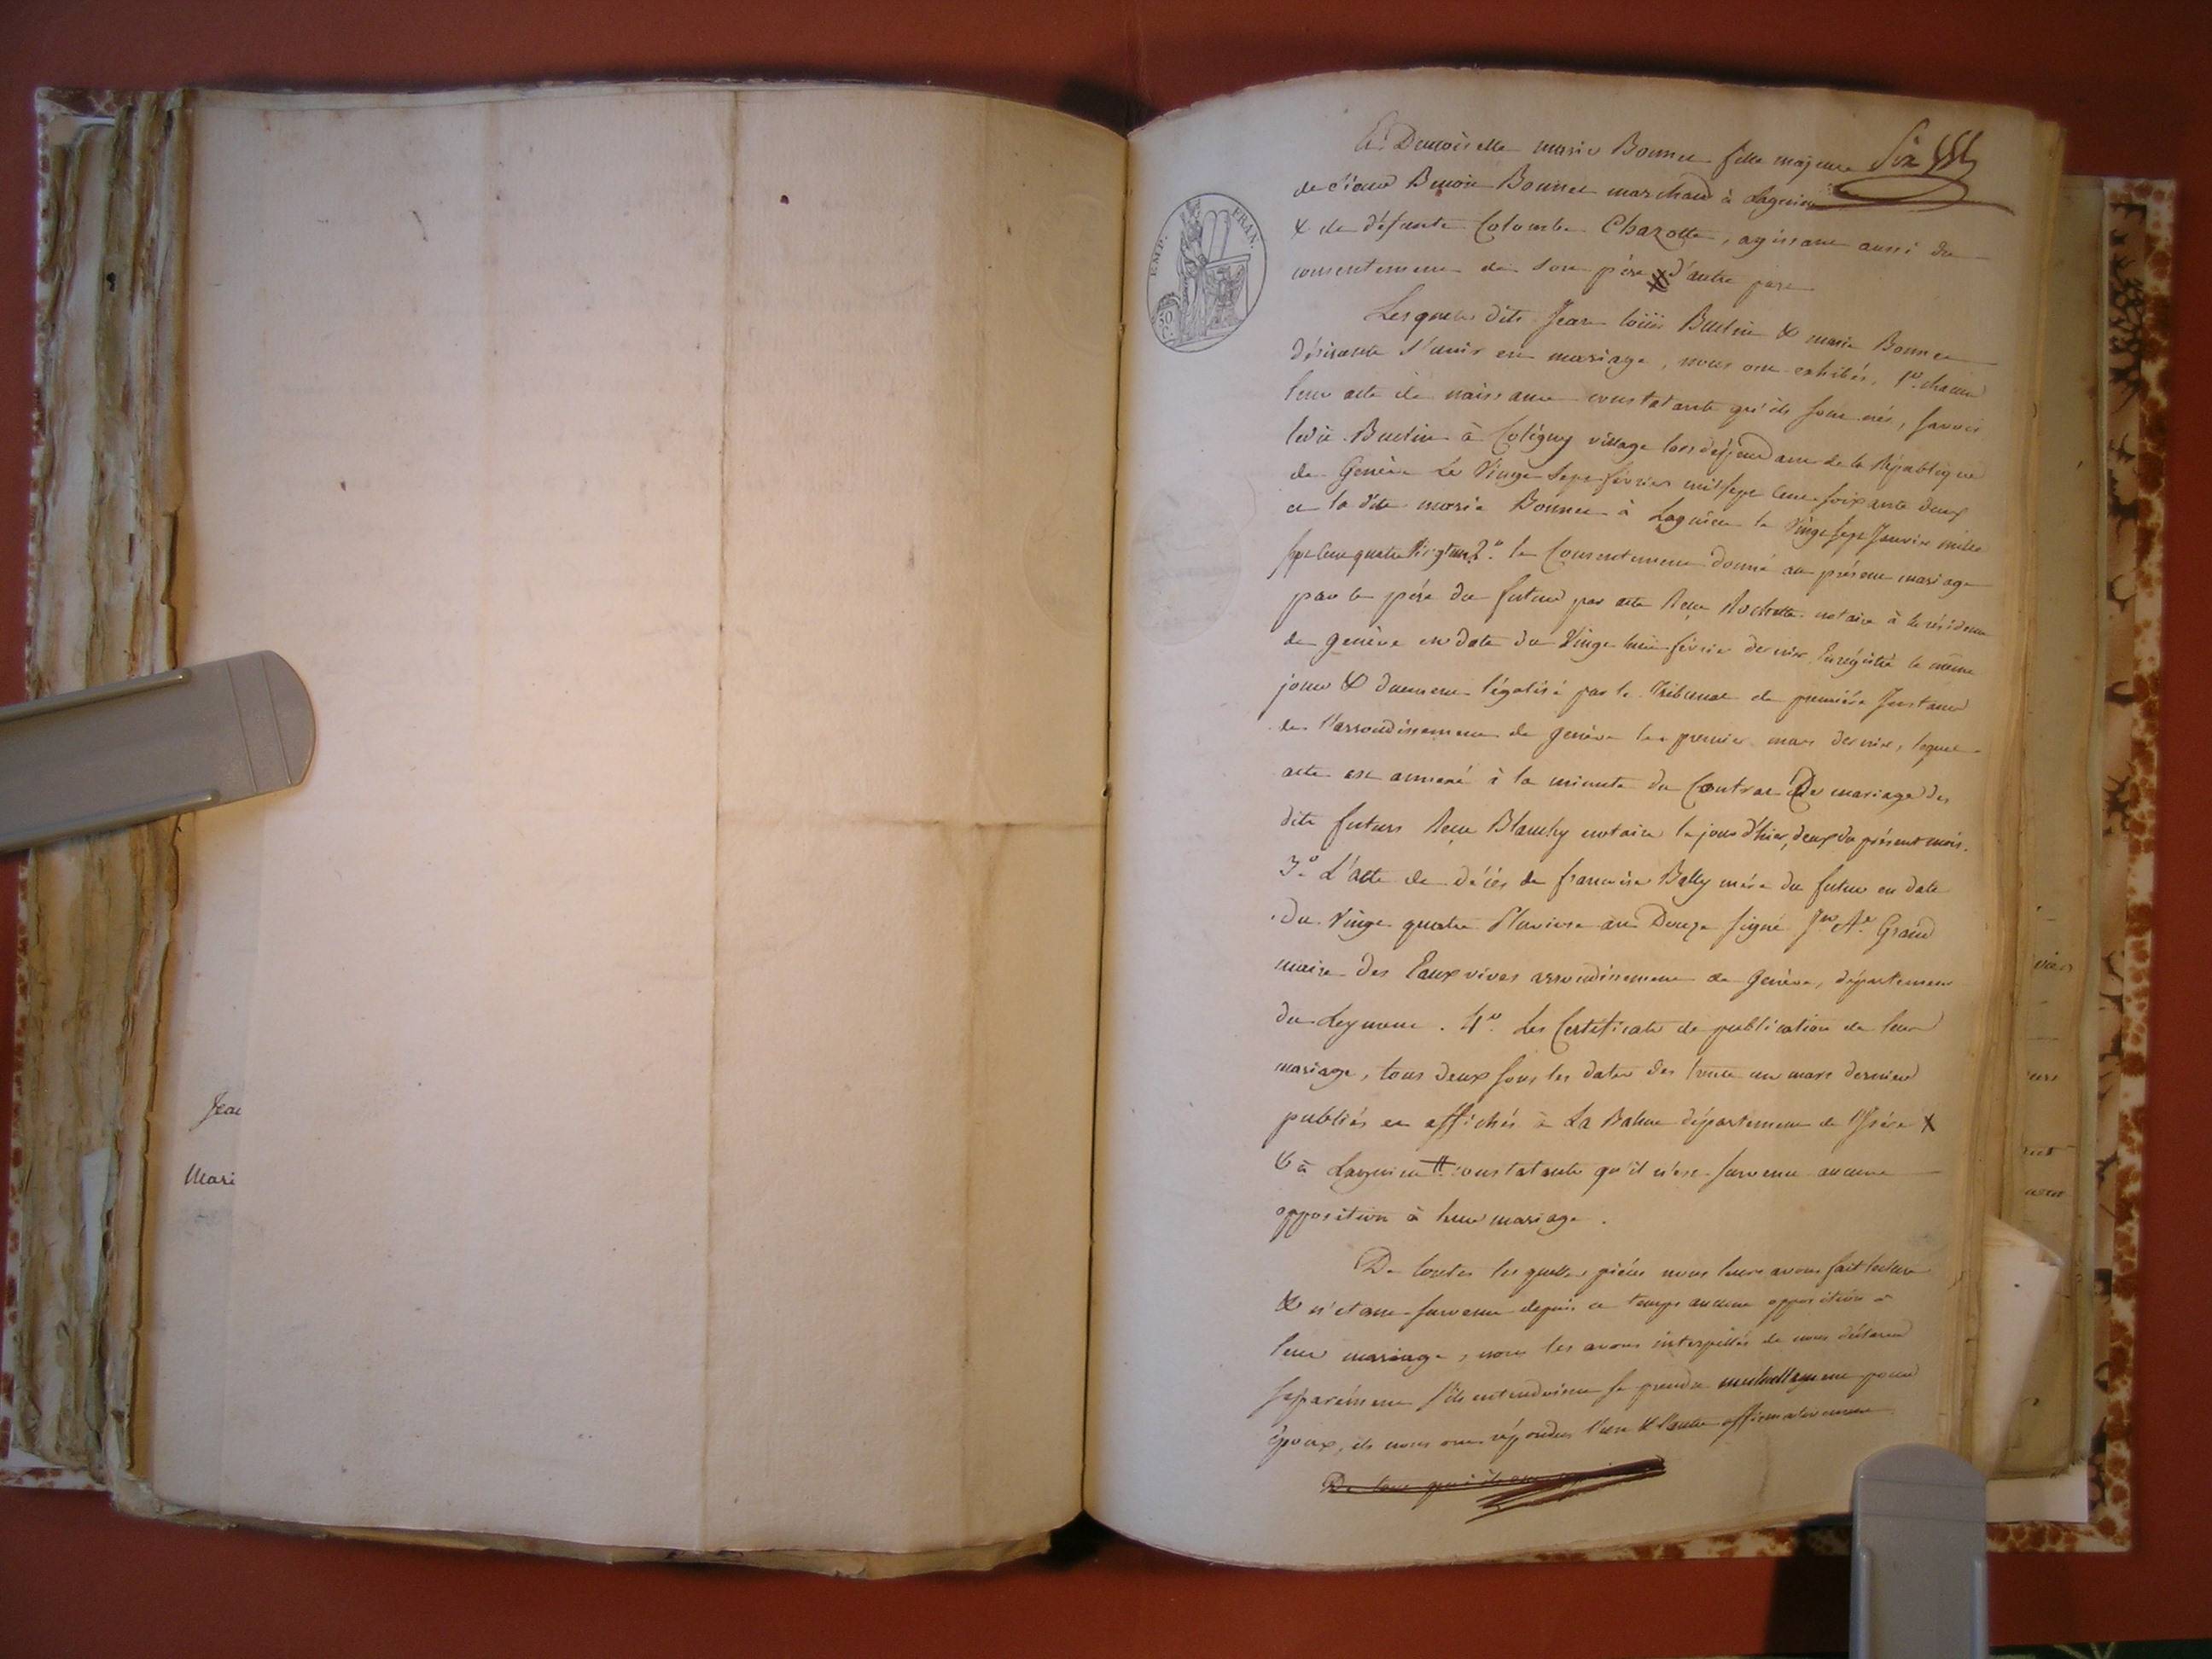 Jea
Mari
EMP. FRAN.
50 C.
Six
Et Demoiselle marie Bonnet fille majeure
de sieur Benoit Bonnet marchand à Lagnieu
& de défunte Colombe Chazotte, agissant aussi du
consentement de son père d'autre part
Lesquels dits Jean loüis Butin & marie Bonnet
désirants s'unir en mariage, nous ont exhibés, 1º. chacun
leur acte de naissance constatants qu'ils sont nés, savoir
ledit Butin à Coligny village lors dépendant de la République
de Genève Le Vingt Sept février mil sept Cent soixante deux
et la dite marie Bonnet à Lagnieu le Vingt Sept Janvier mille
sept Cent quatre Vingt un 2º. le Consentement donné au présent mariage
par le père du futur par acte Reçu Rochette notaire à la résidence
de genève en date du Vingt huit février dernier Enrégistré le même
jour & duement légalisé par le Tribunal de première Instance
de l'arrondissement de genève le premier mars dernier, lequel
acte est annexé à la minute du Contrat de mariage des
dits futurs Reçu Blanchy notaire le jour d'hier, deux du présent mois.
3º L'acte de décès de francoise Bally mère du futur en date
du Vingt quatre Pluviose an Douze signé Jn. Ae. Grand
maire des Eaux vives arrondissement de Genève, département
du Leyment. 4º. Les Certificats de publication de leur
mariage, tous deux sous les dates des trente un mars dernier
publiés et affichés à La Balme département de l'Isère X
& à Lagnieu # constatants qu'il n'est survenu aucune
opposition à leur mariage.
De toutes lesquelles pièces nous leurs avons fait lecture
& n'etant survenu depuis ce temps aucune opposition à
leur mariage, nous les avons interpellés de nous déclarer
séparément s'ils entendoient se prendre mutuellement pour
Epoux, ils nous ont répondus l'un & l'autre affirmativement
De tout quoi